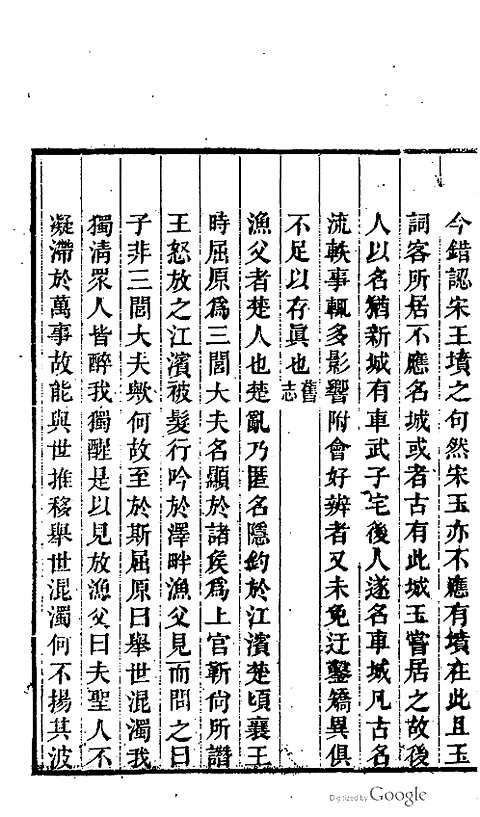 今錯認宋王墳之句然宋玉亦不應有墳在此且玉
詞客所居不應名城或者古有此城玉嘗居之故後
人以名猶新城有車武子宅後人遂名車城凡古名
流軼事輒多影響附會好辨者又未免迂鑿矯異俱
不足以存眞也舊志
漁父者楚人也楚亂乃匿名隱釣於江濱楚頃襄王
時屈原爲三閭大夫名顯於諸矦爲上官靳尙所譖
王怒放之江濱被髮行吟於澤畔漁父見而問之曰
子非三閭大夫歟何故至於斯屈原曰舉世混濁我
獨清眾人皆醉我獨醒是以見放漁父曰夫聖人不
凝滯於萬事故能與世推移舉世混濁何不揚其波
Digitized by Google